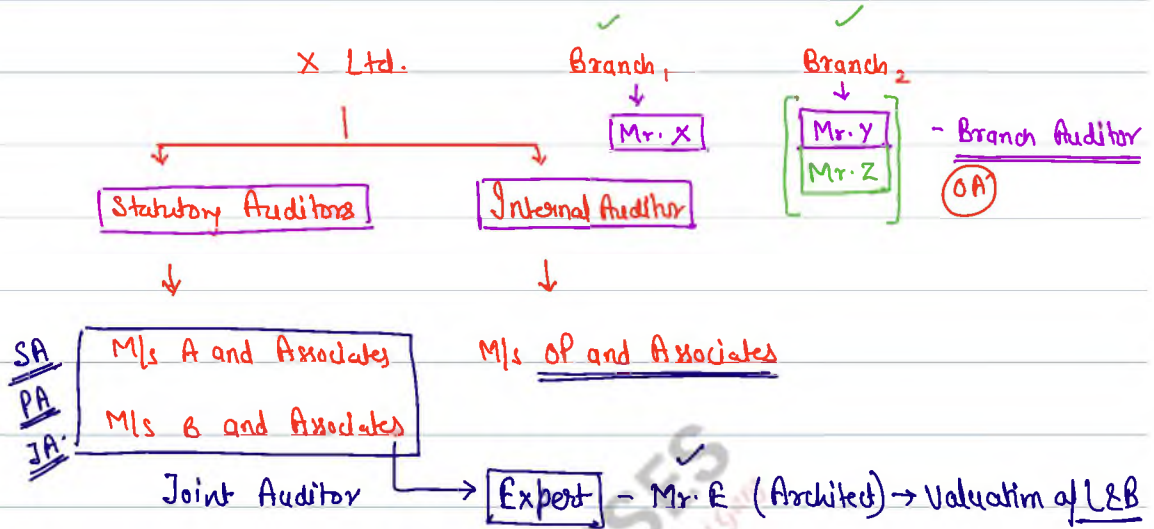 X Ltd. Branch 1 Branch 2
Mr. X Mr. Y - Branch Auditor
Mr. Z OA
Statutory Auditors Internal Auditor
SA M/s A and Associates M/s OP and Associates
PA
M/s B and Associates
JA.
Joint Auditor Expert - Mr. E (Architect) → Valuation of L&B